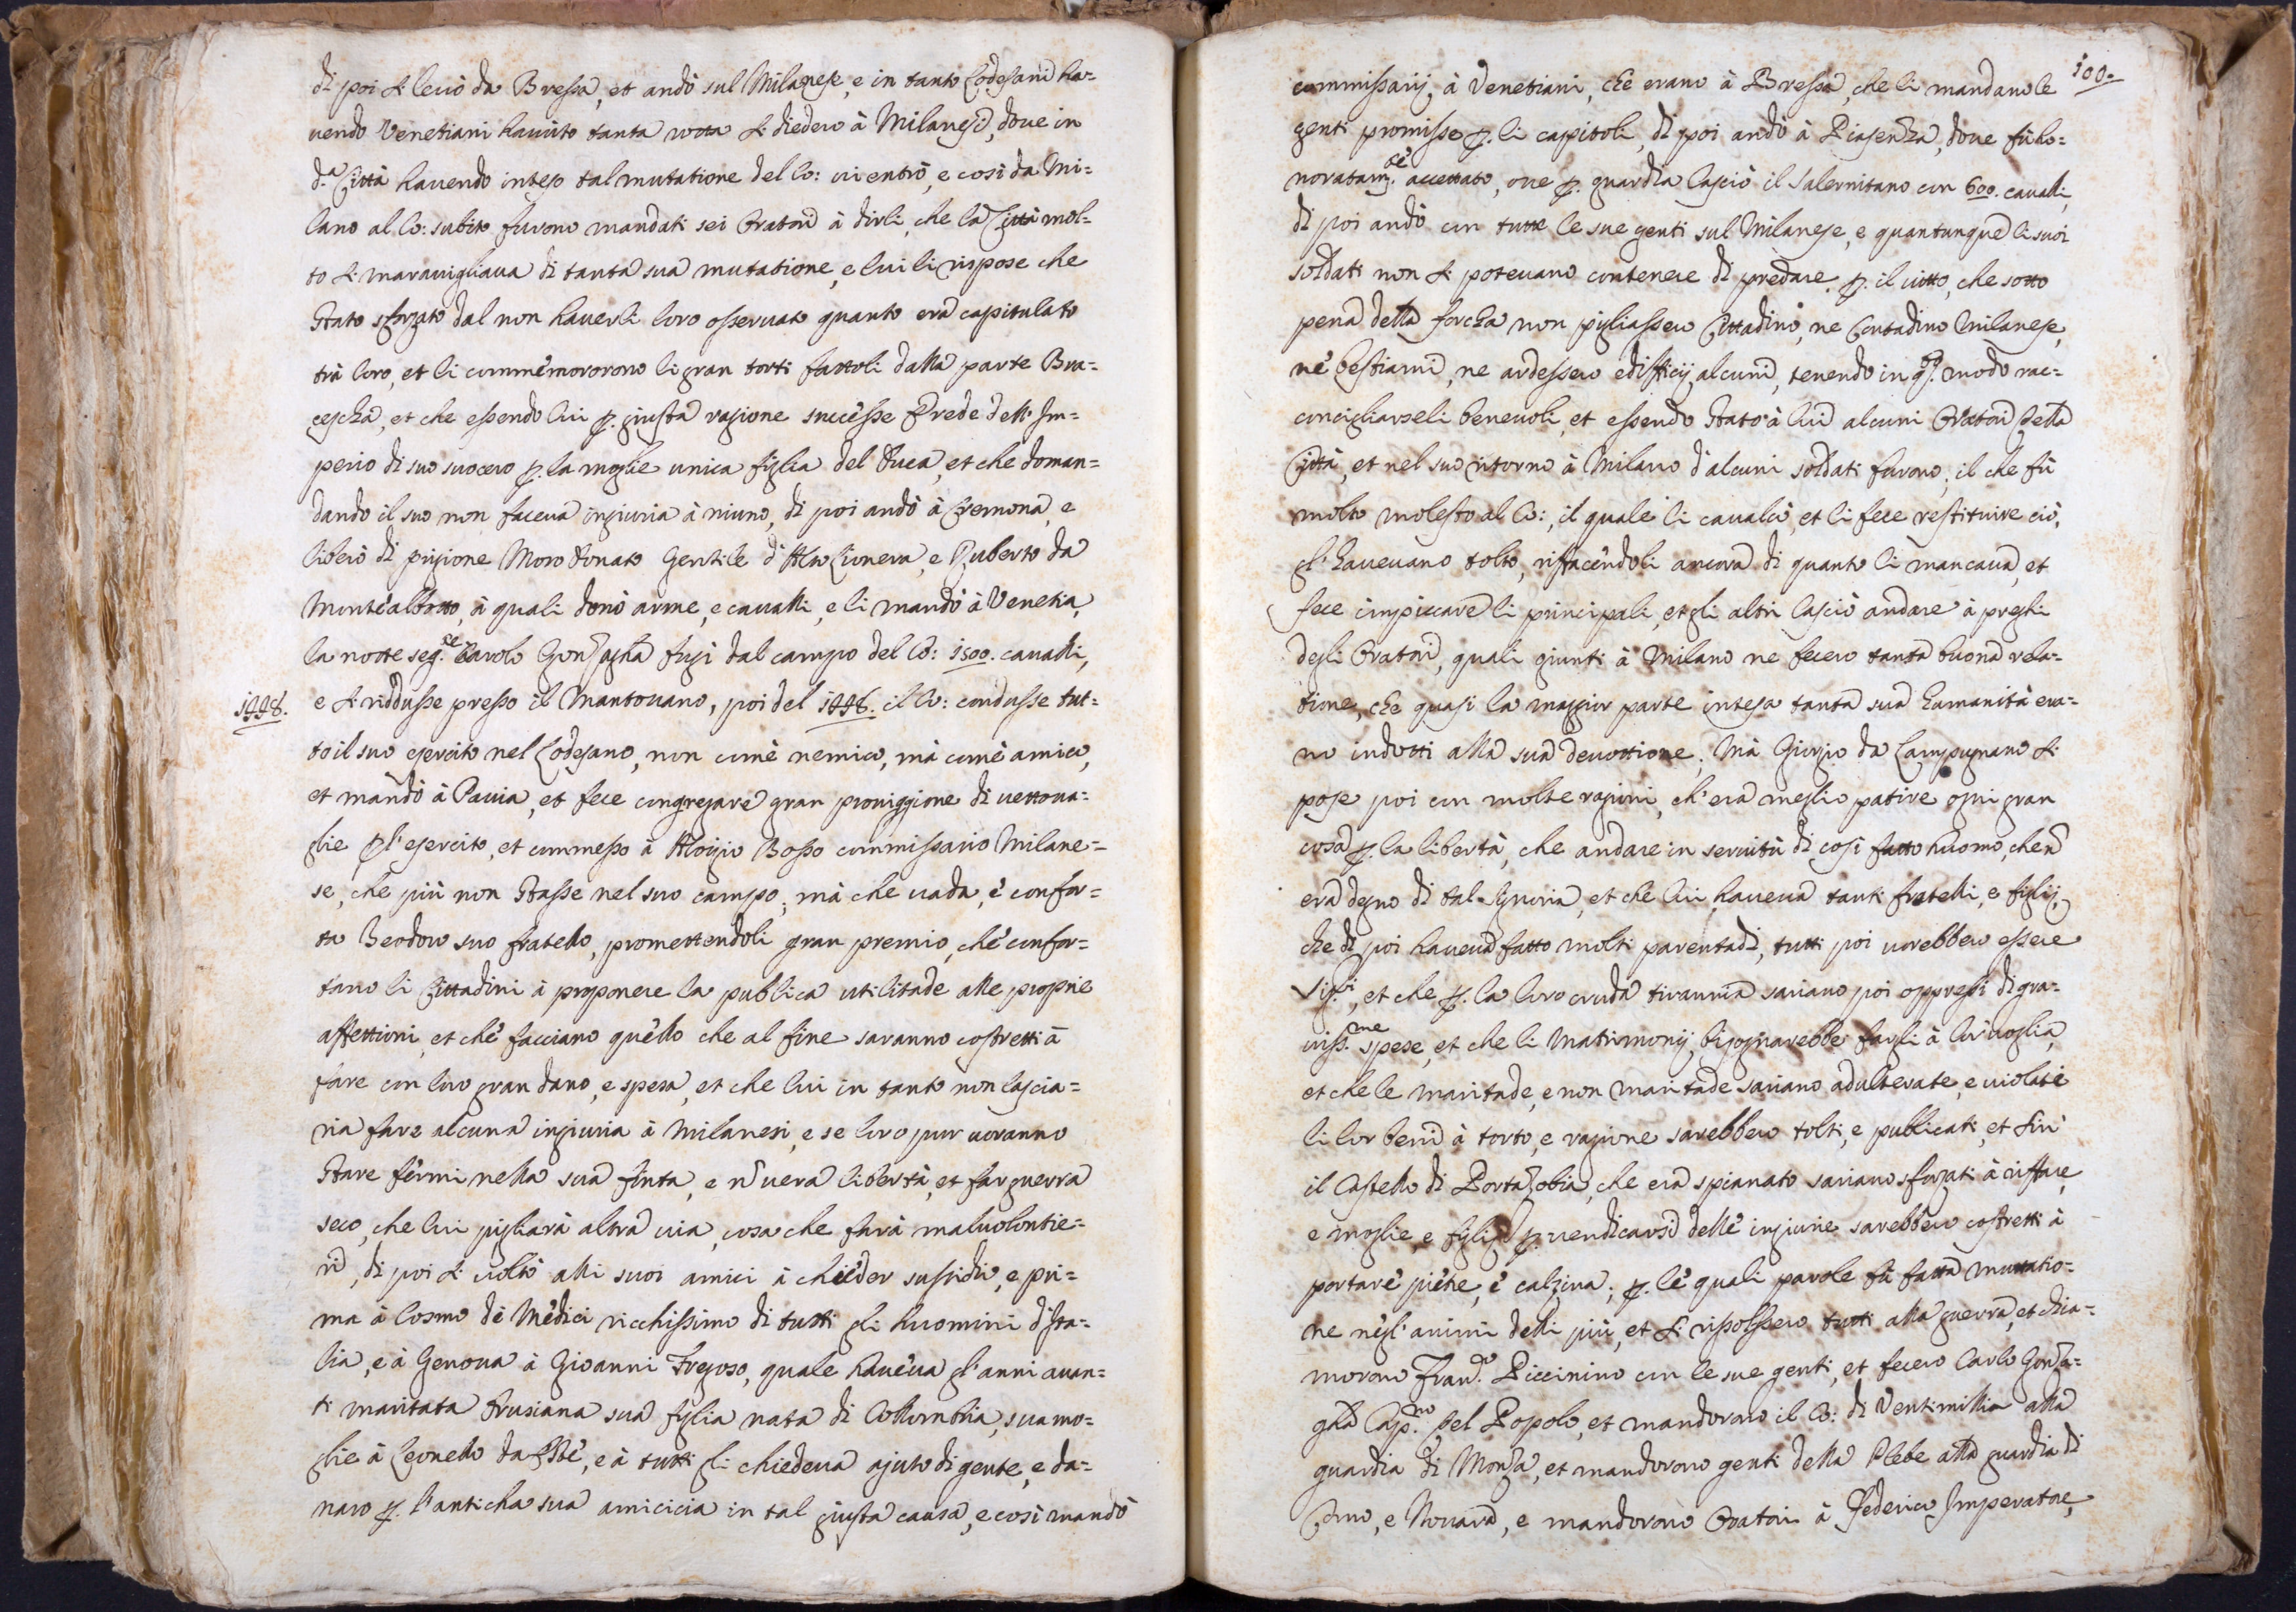 di poi si levò da Bressa, et andò sul Milanese, e in tanto Lodesani ha=
uendo Venetiani hauuto tanta rotta si diedero à Milanesi, doue in
d.ª Città hauendo inteso tal mutatione del Co: ui entrò, e così da Mi=
lano al Co: subito furono mandati sei Oratori à dirli, che la Città mol=
to si marauigliaua di tanta sua mutatione, e lui li rispose che
Stato sforzato dal non hauerli loro osseruato quanto era capitulato
trà loro, et li commemororono li gran torti fattoli dalla parte Bra=
cescha, et che essendo lui p. giusta ragione successe Erede dell'Im=
perio di suo suocero p. la moglie unica figlia del Duca, et che doman=
dando il suo non faceua ingiuria à niuno, di poi andò à Cremona, e
liberò di prigione Moro Donato Gentile d'Alto Lionera, e Ruberto da
Monte albotto, à quali donò arme, e caualli, e li mandò à Venetia,
la notte seg.te Carolo Gonsagha fugì dal campo del Co: 1500. caualli,
1448. e si riddusse presso il Mantouano, poi del 1448. il Co: condusse tut=
to il suo esercito nel Lodesano, non come nemico, mà come amico,
et mandò à Pauia, et fece congregare gran prouiggione di uettoua=
glie p l'esercito, et commesso à Aloigio Bosso commissario Milane=
se, che più non Stasse nel suo campo, mà che uada, è confor=
ta Beodoro suo fratello, promettendoli gran premio, che confor=
tano li Cittadini à proponere la publica utilitade alle proprie
affettioni, et che facciano quello che al fine saranno costretti à
fare con loro gran dano, e spesa, et che lui in tanto non lascia=
ria fare alcuna ingiuria à Milanesi, e se loro pur uoranno
Stare fermi nella sua finta, e ñ uera libertà, et far guerra
seco, che lui pigliarà altra uia, cosa che farà maluolontie=
ri, di poi si uoltò alli suoi amici à chieder sussidio, e pri=
ma à Cosmo de Medici ricchissimo di tutti gli huomini d'Ita=
lia, e à Genoua à Gioanni Fregoso, quale haueua gl'anni auan=
ti maritata Drusiana sua figlia nata di Collombia, sua mo=
glie à Leonello da Este, e à tutti gli chiedeua ajuto di gente, e da=
naro p. l'anticha sua amicicia in tal giusta causa, e così mandò
100.
commissarij, à Venetiani, che erano à Bressa, che li mandano le
genti promisse p. li capitoli, di poi andò à Piasenza, doue fù ho=
noratam.te accettato, oue p. guardia lasciò il Salernitano con 600. caualli,
di poi andò con tutte le sue genti sul Milanese, e quantunque li suoi
soldati non si poteuano contenere di predare p. il uitto, che sotto
pena della forcha non pigliassero Cittadino, ne Contadino Milanese,
nè bestiami, ne ardessero edifficij alcuni, tenendo in q.to modo rac=
concigliarseli beneuoli, et essendo Stato à lui alcuni Oratori della
Città, et nel suo ritorno à Milano d'alcuni soldati furono, il che fù
molto molesto al Co:, il quale li caualcò, et li fece restituire ciò,
gl'haueuano tolto, riffacendoli ancora di quanto li mancaua, et
fece impiccare li principali, et gli altri lasciò andare à preghi
degli Oratori, quali giunti à Milano ne fecero tanta buona rela=
tione, che quasi la maggior parte intesa tanta sua humanità era=
no indotti alla sua deuottione; Mà Giorgio da Lampugnano si
pose poi con molte ragioni, ch'era meglio patire ogni gran
cosa p. la libertà, che andare in seruitù di così fatto huomo, che ñ
era degno di tal Signoria, et che lui haueua tanti fratelli, e figlij,
che di poi haueua fatto molti parentadi, tutti poi uorebbero essere
Sig.ri, et che p. la loro cruda tirannia sariano poi oppressi di gra=
uiss.me spese, et che li Matrimonij, bisognarebbe fargli à lor uoglia,
et che le maritade, e non maritade sariano adulterate, e uiolate
li lor beni à torto, e ragione sarebbero tolti, e publicati, et fin
il Castello di Porta Zobia, che era spianato sariano sforzati à riffare,
e moglie, e figlij p. uendicarsi delle ingiurie sarebbero costretti à
portare pietre, è calzina; p. le quali parole fù fatta muttatio=
ne negl'animi delli più, et si rissolssero tutti alla guerra, et chia=
morono Fran.co Piccinino con le sue genti, et fecero Carlo Gonza=
gha Cap.no del Popolo, et mandorono il Co: di Ventimillia alla
guardia di Monza, et mandorono genti della Plebe alla guardia di
Como, e Nouara, e mandorono Oratori à Federico Imperatore,